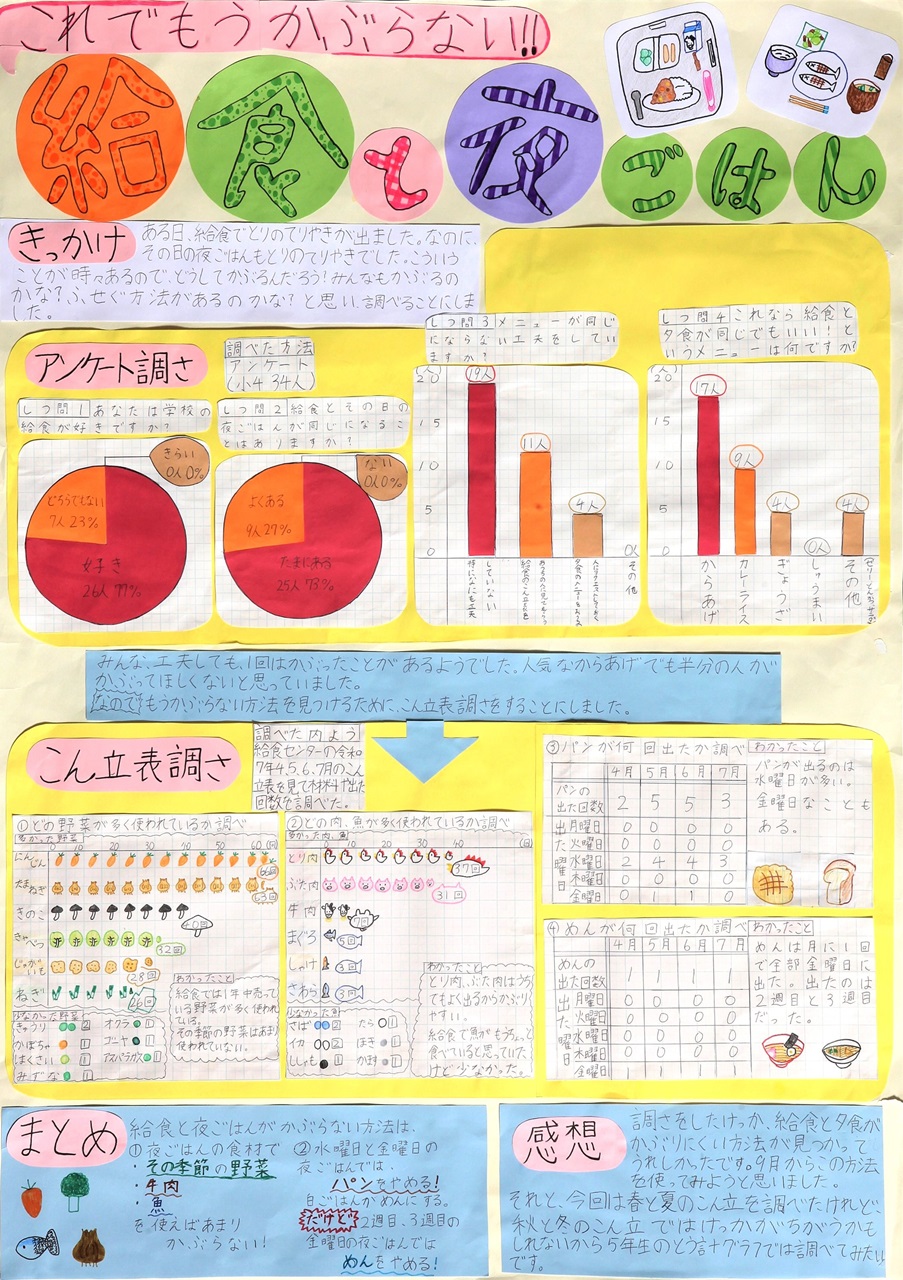 これでもうかぶらない!!
給食と夜ごはん
きっかけ
ある日、給食でとりのてりやきが出ました。なのに、
その日の夜ごはんもとりのてりやきでした。こういう
ことが時々あるので、どうしてかぶるんだろう!みんなもかぶるの
かな?ふせぐ方法があるのかな?と思い調べることにしま
した。
アンケート調さ
調べた方法
アンケート
(小4 34人)
しつ問1 あなたは学校の
給食が好きですか?
きらい
0人0%
どちらでもない
7人 23%
好き
26人 77%
しつ問2 給食とその日の
夜ごはんが同じになるこ
とはありますか?
ない
0人0%
よくある
9人 27%
たまにある
25人 73%
しつ問3 メニューが同じ
にならない工夫をしてい
ますか?
(人)
20
15
10
5
0
19人
11人
4人
0人
特になにも工夫
していない
その他
しつ問4 これなら給食と
夕食が同じでもいい!と
いうメニューは何ですか?
(人)
20
15
10
5
0
17人
9人
4人
0人
4人
からあげ
カレーライス
ぎょうざ
しゅうまい
その他
みんな、工夫しても、1回はかぶったことがあるようでした。人気なからあげでも半分の人が
かぶってほしくないと思っていました。
なので!もうかぶらない方法を見つけるために、こん立表調さをすることにしました。
こん立表調さ
調べた内よう
給食センターの令和
7年4、5、6、7月のこん
立表を見て材料や出た
回数を調べた。
①どの野菜が多く使われているか調べ
多かった野菜
0 10 20 30 40 50 60(回)
にんじん 66回
たまねぎ 63回
きのこ 40回
きゃべつ 32回
じゃがいも 28回
ねぎ 26回
少なかった野菜
きゅうり 2 オクラ 1
かぼちゃ 1 ゴーヤ 1
はくさい 1 アスパラガス 1
みずな 1
わかったこと
給食では1年中売って
いる野菜が多く使われ
ている。
その季節の野菜はあまり
使われていない。
②どの肉、魚が多く使われているか調べ
多かった肉、魚
0 10 20 30 40 (回)
とり肉 37回
ぶた肉 31回
牛肉 7回
まぐろ 5回
しゃけ 3回
さわら 3回
少なかった魚
さば 2 たら 1
イカ 2 ほき 1
ししゃも 1 かます 1
わかったこと
とり肉、ぶた肉はうち
でもよく出るからかぶり
やすい。
給食で魚がもうちょっと
食べていると思っていた
けど少なかった。
③パンが何回出たか調べ
4月 5月 6月 7月
パンの
出た回数 2 5 5 3
出た曜日
月曜日 0 0 0 0
火曜日 0 0 0 0
水曜日 2 4 4 3
木曜日 0 0 0 0
金曜日 0 1 1 0
わかったこと
パンが出るのは
水曜日が多い。
金曜日なことも
ある。
④めんが何回出たか調べ
4月 5月 6月 7月
めんの
出た回数 1 1 1 1
出た曜日
月曜日 0 0 0 0
火曜日 0 0 0 0
水曜日 0 0 0 0
木曜日 0 0 0 0
金曜日 1 1 1 1
わかったこと
めんは月に1回
で全部金曜日に
出た。出たのは
2週目と3週目
だった。
まとめ
給食と夜ごはんがかぶらない方法は、
①夜ごはんの食材で
・その季節の野菜
・牛肉
・魚
を使えばあまり
かぶらない!
②水曜日と金曜日の
夜ごはんでは、
パンをやめる!
日ごはんかめんにする。
だけど2週目、3週目の
金曜日の夜ごはんでは
めんをやめる!
感想
調さをしたけっか、給食と夕食が
かぶりにくい方法が見つかって
うれしかったです。9月からこの方法
を使ってみようと思いました。
それと、今回は春と夏のこん立を調べたけれど、
秋と冬のこん立ではけっかがちがうかも
しれないから5年生のとう計グラフでは調べてみたい
です。